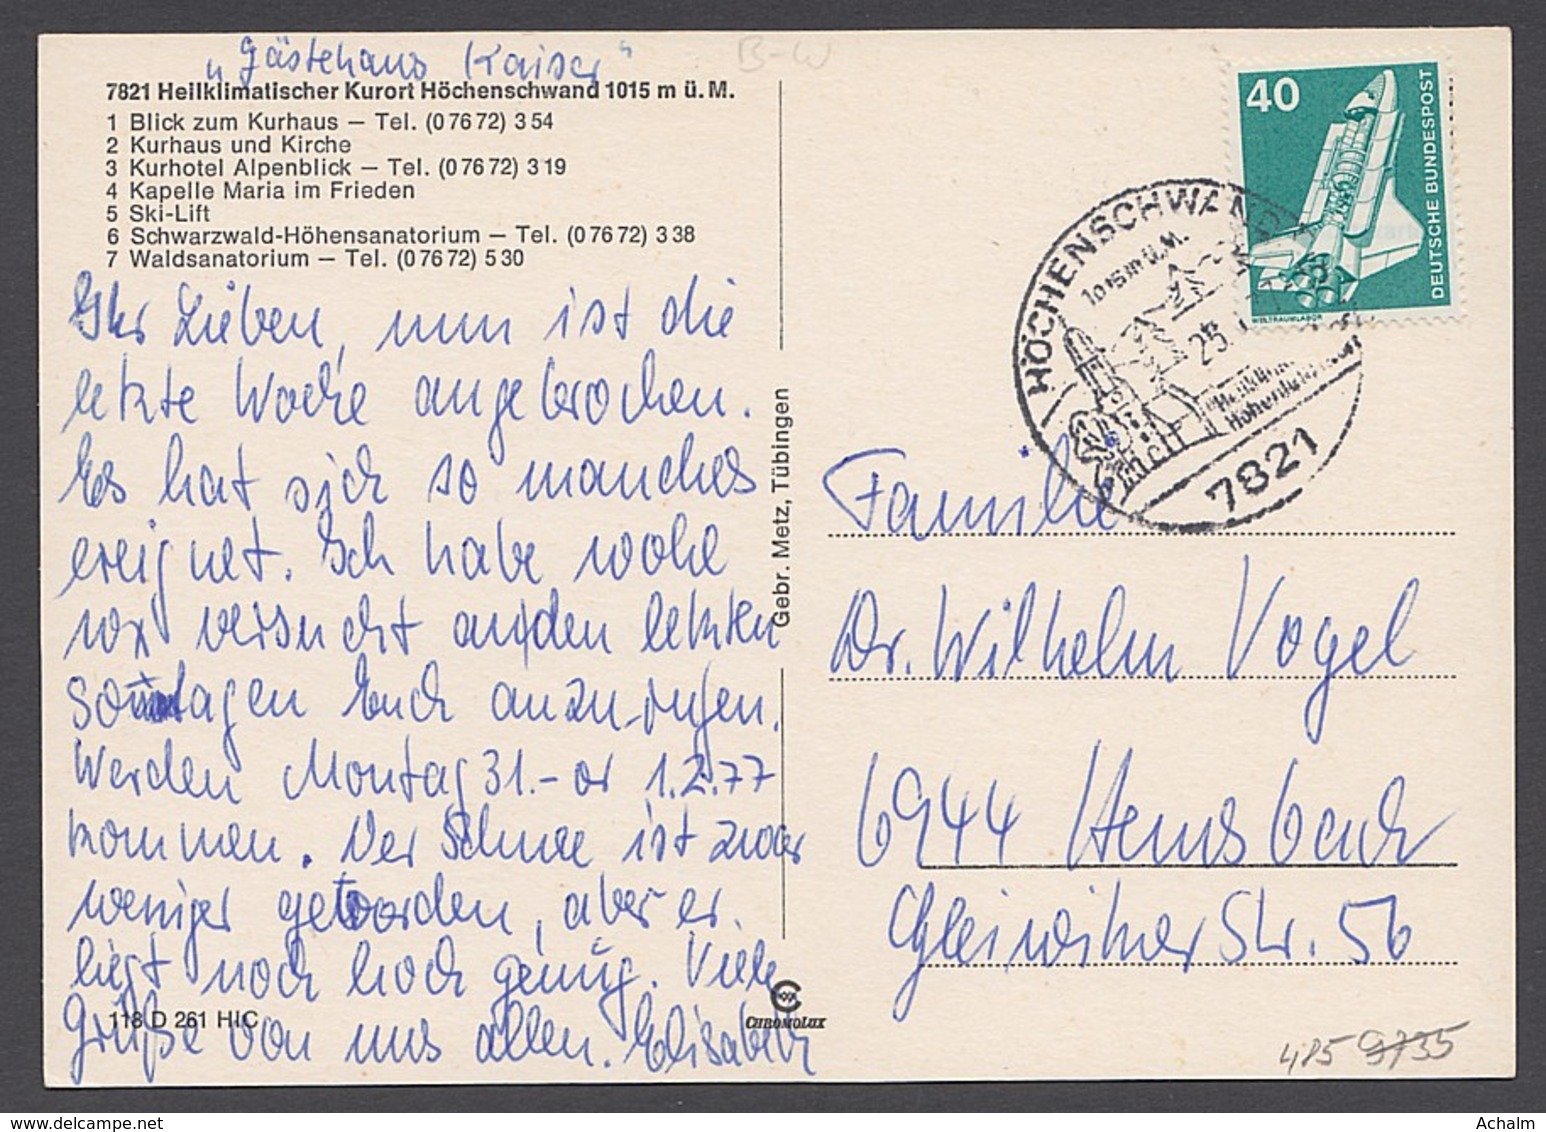 „Gästehaus Kaiser“
B-W
7821 Heilklimatischer Kurort Höchenschwand 1015 m ü. M.
1 Blick zum Kurhaus — Tel. (0 76 72) 3 54
2 Kurhaus und Kirche
3 Kurhotel Alpenblick — Tel. (0 76 72) 3 19
4 Kapelle Maria im Frieden
5 Ski-Lift
6 Schwarzwald-Höhensanatorium — Tel. (0 76 72) 3 38
7 Waldsanatorium — Tel. (0 76 72) 5 30
Ihr Lieben, nun ist die
letzte Woche angebrochen.
Es hat sich so manches
ereignet. Ich habe wohl
versucht an den letzten
Sonntagen Euch anzurufen.
Werden Montag 31.- od 1.2.77
kommen. Der Schnee ist zwar
weniger geworden, aber er
liegt noch hoch genug. Viele
Grüße von uns allen. Elisabeth
118 D 261 HIC
Gebr. Metz, Tübingen
CHROMOLUX
40
DEUTSCHE BUNDESPOST
WELTRAUMLABOR
HÖCHENSCHWAND
1015 m ü. M.
25.
7821
Familie
Dr. Wilhelm Vogel
6944 Hemsbach
Gleiwitzer Str. 56
485 9735
Achalm